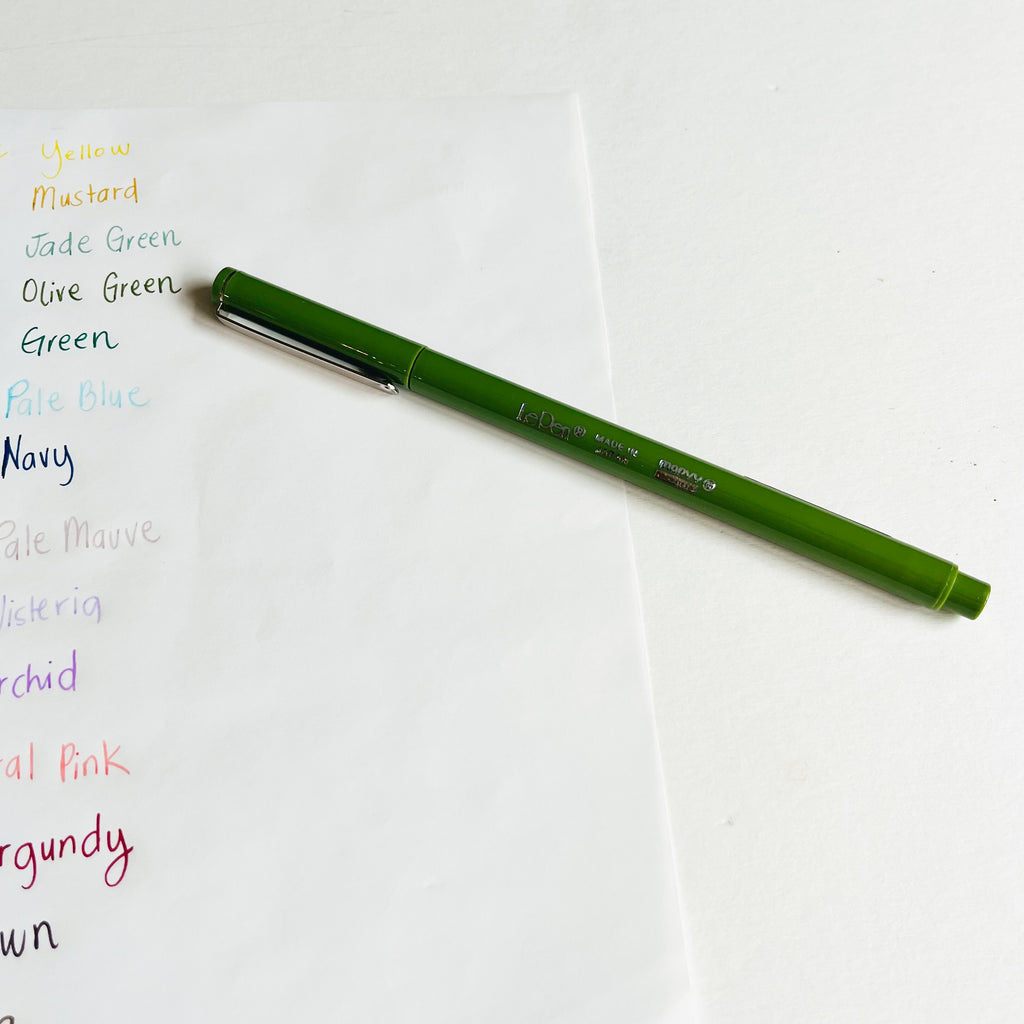 Yellow
Mustard
Jade Green
Olive Green
Green
Pale Blue
Navy
Pale Mauve
isteria
rchid
al Pink
rgundy
wn
LePen®
MADE IN
JAPAN
marvy®